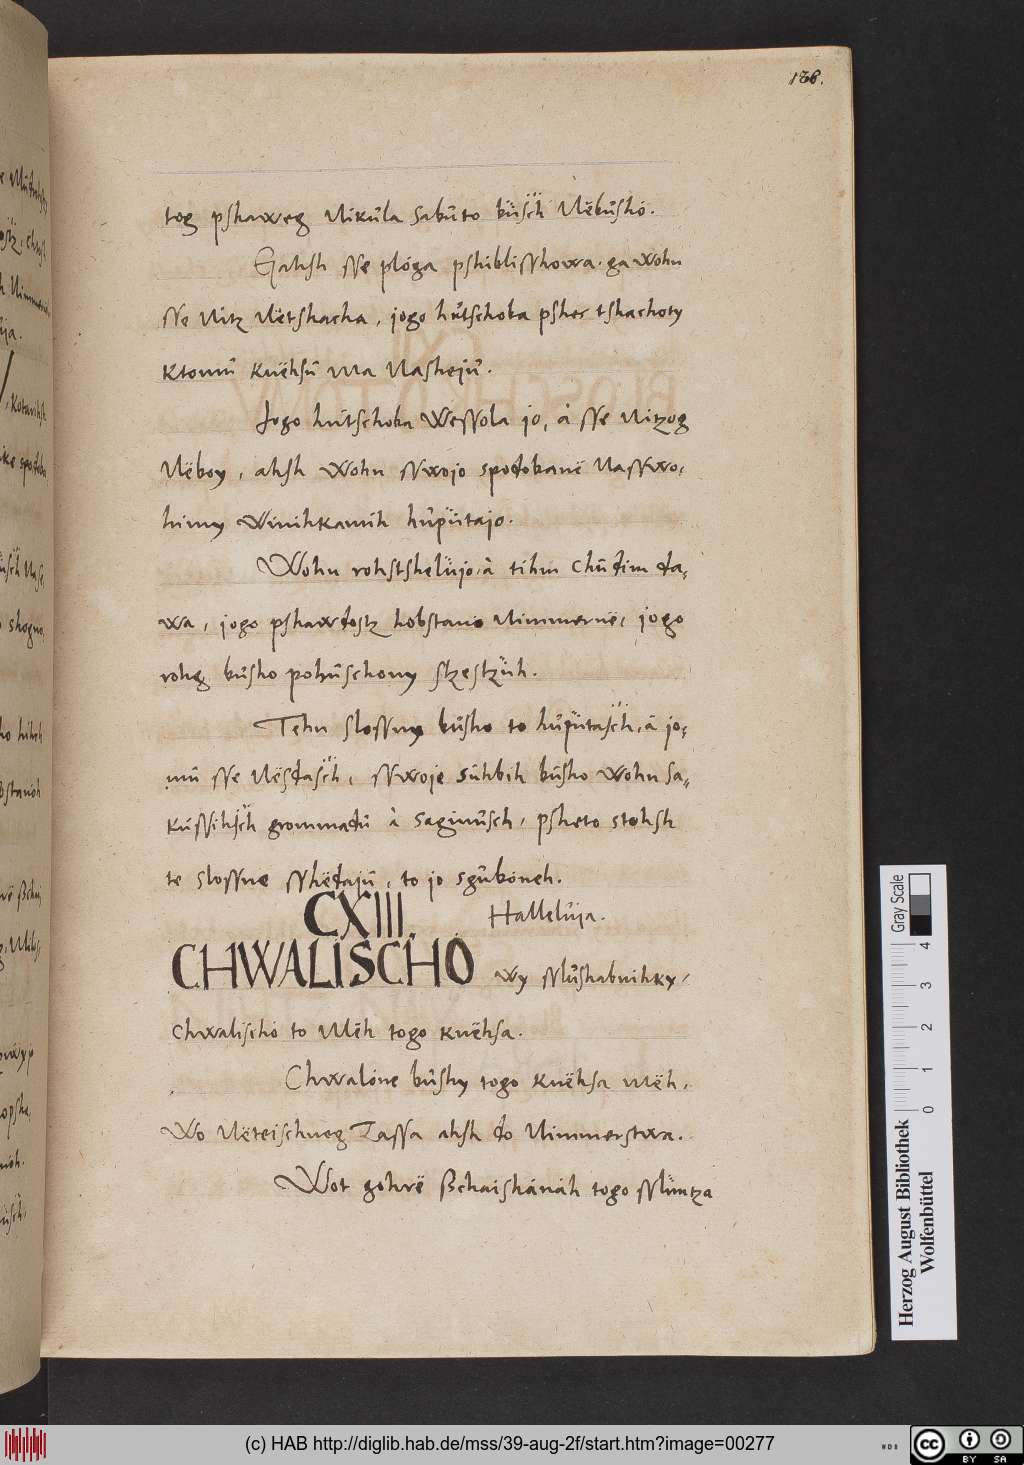 136.
tog pshaweg Nikula sabuto büsch Nëbusho.
Gahsh sse ploga pshiblisshowa. ga wohn
sse Nitz Nëtshacha, jogo hutschoba psher tshachoty
Ktomu Knëhsu ma Nasheju.
Jogo hutschoba Wessola jo, à sse Nitzog
Nëboy, ahsh Wohn sswojo spodobanë Nasswo,
himy Winihkamih hupütajo.
Wohn rohstshelujo, à tihm Chudim da,
wa, jogo pshawdostz hobstano Nimmernë, jogo
rohg busho pohuschony stzestzüh.
Tehn slossny busho to hupütasch, à jo,
mu sse Nësdasch, sswoje suhbih busho Wohn sa,
kussihsch grommadu à saginusch, psheto stohsh
te slossne sshëdaju, to jo sguboneh.
CXIII.
Halleluja.
CHWALISCHO wy sslushabnihky,
Chwalischo to Mëh togo knëhsa.
Chwalone bushy togo Knëhsa Mëh,
Wo Nëteischneg Zassa ahsh do Nimmerstwa.
Wot gohrë sschaishanah togo sslüntza
Gray Scale
4 3 2 1 0
Herzog August Bibliothek
Wolfenbüttel
(c) HAB http://diglib.hab.de/mss/39-aug-2f/start.htm?image=00277
WDB
CC BY SA